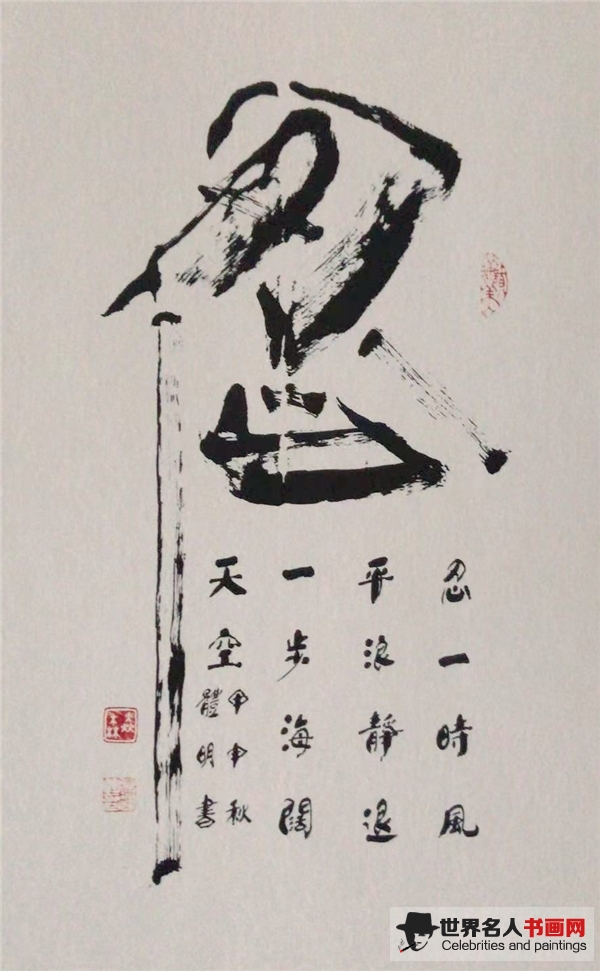 忍
忍一時風
平浪靜退
一步海闊
天空
甲申秋
體明書
世界名人书画网
Celebrities and paintings